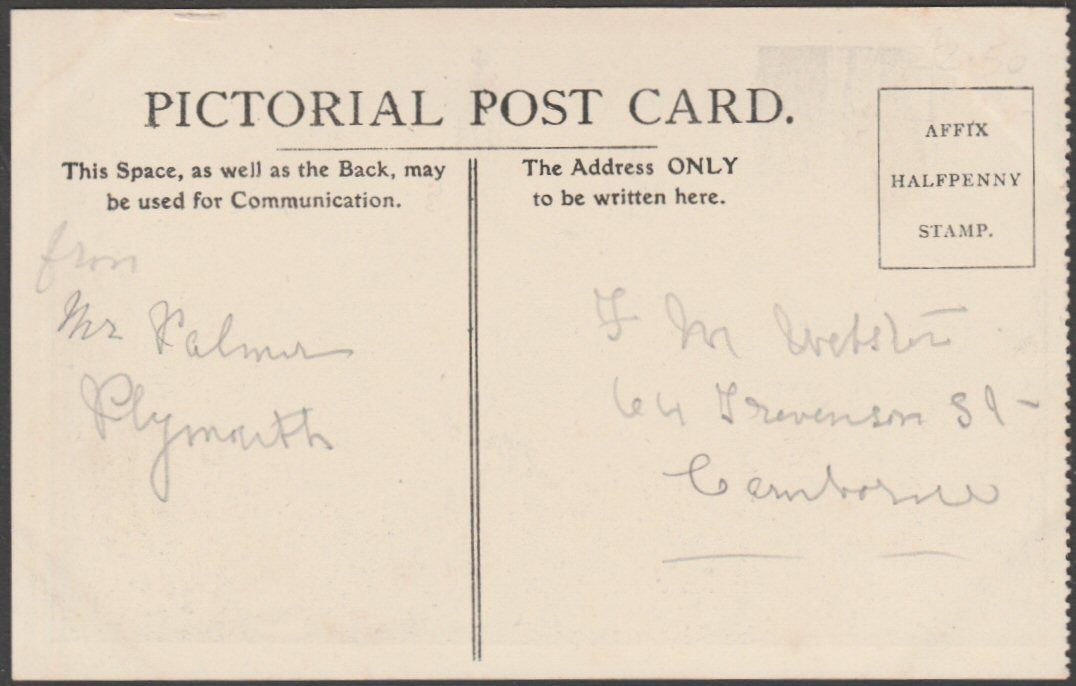 PICTORIAL POST CARD.
This Space, as well as the Back, may
be used for Communication.
The Address ONLY
to be written here.
AFFIX
HALFPENNY
STAMP.
from
Mr Palmer
Plymouth
F M Webster
64 Trevenson St
Camborne